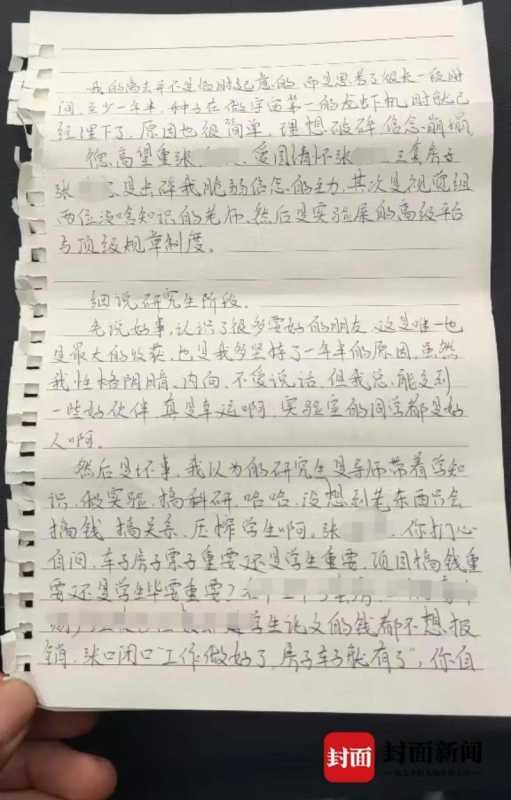 我的离去并不是临时起意的,而是思考了很长一段时
间,至少一年半,种子在做宇宙第一的龙出下机时就已
经埋下了,原因也很简单,理想破碎,信念崩塌
德高望重张 、爱国情怀张 、三套房子
张 是击碎我脆弱信念的主力,其次是视觉组
两位没啥知识的老师,然后是实验屎的高级平台
与顶级规章制度。
细说研究生阶段。
先说好事,认识了很多要好的朋友,这是唯一也
是最大的收获,也是我多坚持了一年半的原因,虽然
我性格阴暗、内向、不爱说话,但我总能交到
一些好伙伴,真是幸运啊,实验室的同学都是好
人啊。
然后是坏事,我以为的研究生是导师带着学知
识,做实验,搞科研,哈哈,没想到老东西只会
搞钱,搞关系,压榨学生啊。张 ,你扪心
自问,车子房子票子重要还是学生重要,项目搞钱重
要还是学生毕业重要?
学生论文的钱都不想报
销,张口闭口"工作做好了,房子车子就有了",你自
封面 封面新闻